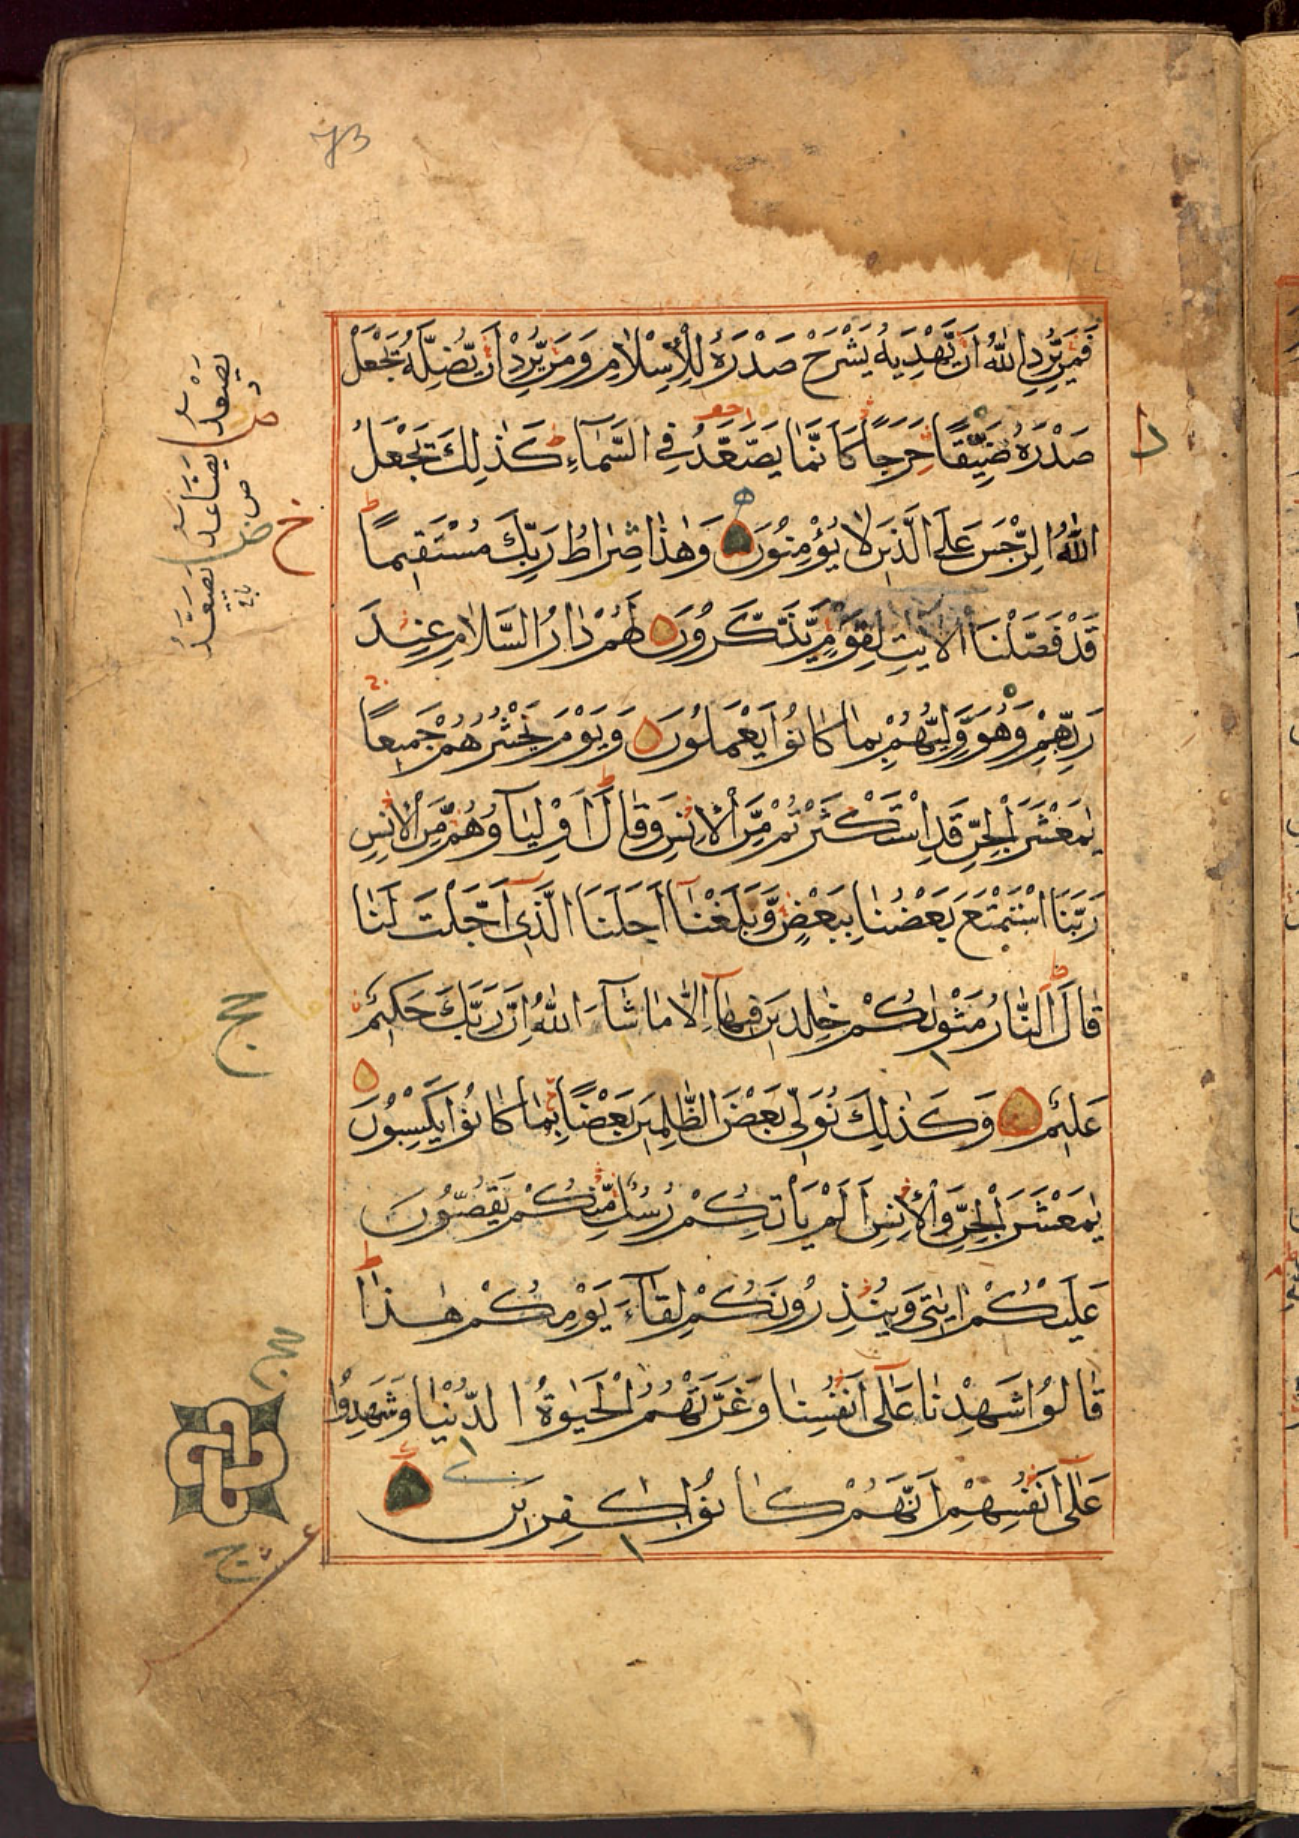 73
فَمَنْ يُّرِدِ اللّٰهُ اَنْ يَّهْدِيَهٗ يَشْرَحْ صَدْرَهٗ لِلْاِسْلَامِ وَمَنْ يُّرِدْ اَنْ يُّضِلَّهٗ يَجْعَلْ
صَدْرَهٗ ضَيِّقًا حَرَجًا كَاَنَّمَا يَصَّعَّدُ فِي السَّمَآءِ كَذٰلِكَ يَجْعَلُ
اللّٰهُ الرِّجْسَ عَلَى الَّذِيْنَ لَا يُؤْمِنُوْنَ وَهٰذَا صِرَاطُ رَبِّكَ مُسْتَقِيْمًا
قَدْ فَصَّلْنَا الْاٰيٰتِ لِقَوْمٍ يَّذَّكَّرُوْنَ لَهُمْ دَارُ السَّلَامِ عِنْدَ
رَبِّهِمْ وَهُوَ وَلِيُّهُمْ بِمَا كَانُوْا يَعْمَلُوْنَ وَيَوْمَ نَحْشُرُهُمْ جَمِيْعًا
يٰمَعْشَرَ الْجِنِّ قَدِ اسْتَكْثَرْتُمْ مِّنَ الْاِنْسِ وَقَالَ اَوْلِيَآؤُهُمْ مِّنَ الْاِنْسِ
رَبَّنَا اسْتَمْتَعَ بَعْضُنَا بِبَعْضٍ وَّبَلَغْنَآ اَجَلَنَا الَّذِيْٓ اَجَّلْتَ لَنَا
قَالَ النَّارُ مَثْوٰىكُمْ خٰلِدِيْنَ فِيْهَآ اِلَّا مَا شَآءَ اللّٰهُ اِنَّ رَبَّكَ حَكِيْمٌ
عَلِيْمٌ وَكَذٰلِكَ نُوَلِّيْ بَعْضَ الظّٰلِمِيْنَ بَعْضًا بِمَا كَانُوْا يَكْسِبُوْنَ
يٰمَعْشَرَ الْجِنِّ وَالْاِنْسِ اَلَمْ يَاْتِكُمْ رُسُلٌ مِّنْكُمْ يَقُصُّوْنَ
عَلَيْكُمْ اٰيٰتِيْ وَيُنْذِرُوْنَكُمْ لِقَآءَ يَوْمِكُمْ هٰذَا
قَالُوْا شَهِدْنَا عَلٰٓى اَنْفُسِنَا وَغَرَّتْهُمُ الْحَيٰوةُ الدُّنْيَا وَشَهِدُوْا
عَلٰٓى اَنْفُسِهِمْ اَنَّهُمْ كَانُوْا كٰفِرِيْنَ